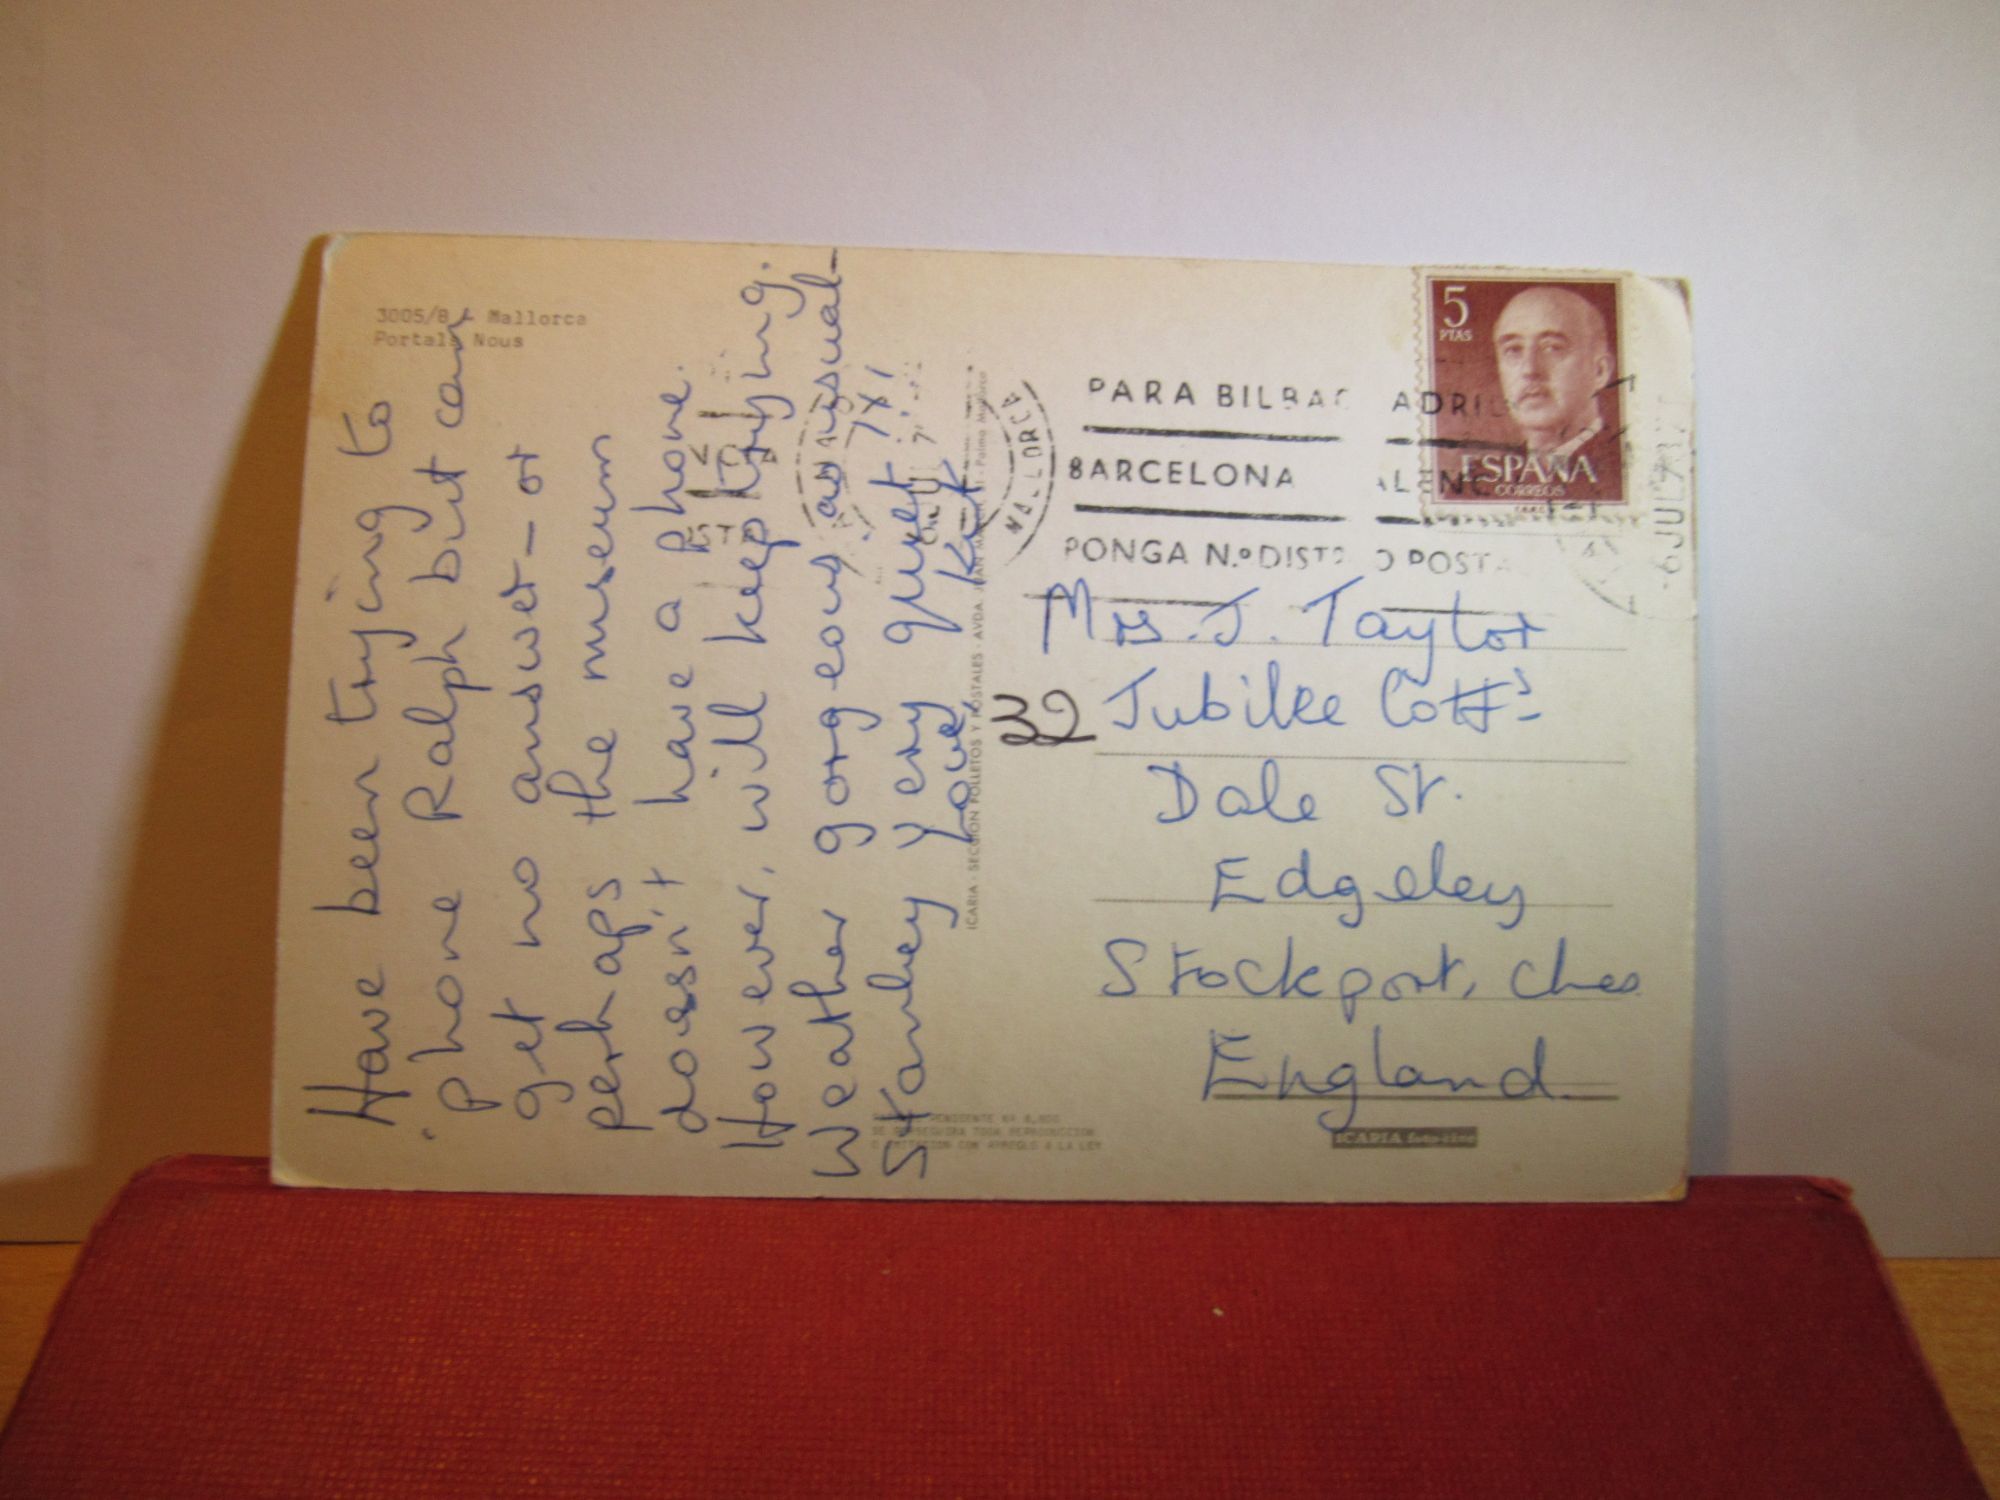 3005/8 - Mallorca
Portals Nous
Have been trying to
'phone Ralph but can
get no answer – or
perhaps the museum
doesn't have a phone.
However, will keep trying.
Weather gorgeous as usual –
Stanley very quiet!
Love, Kit
ICARIA - SECCION FOLLETOS Y POSTALES - AVDA. JUAN
MALLORCA
PARA BILBAO ADRI
BARCELONA
PONGA N.º DIST O POSTA
5
PTAS
ESPAÑA
CORREOS
6 JUL
Mrs. J. Taylor
32 Jubilee Cotts
Dale St.
Edgeley
Stockport, Ches
England.
DE TODA REPRODUCCION
O IMITACION CON ARREGLO A LA LEY
ICARIA foto-cine